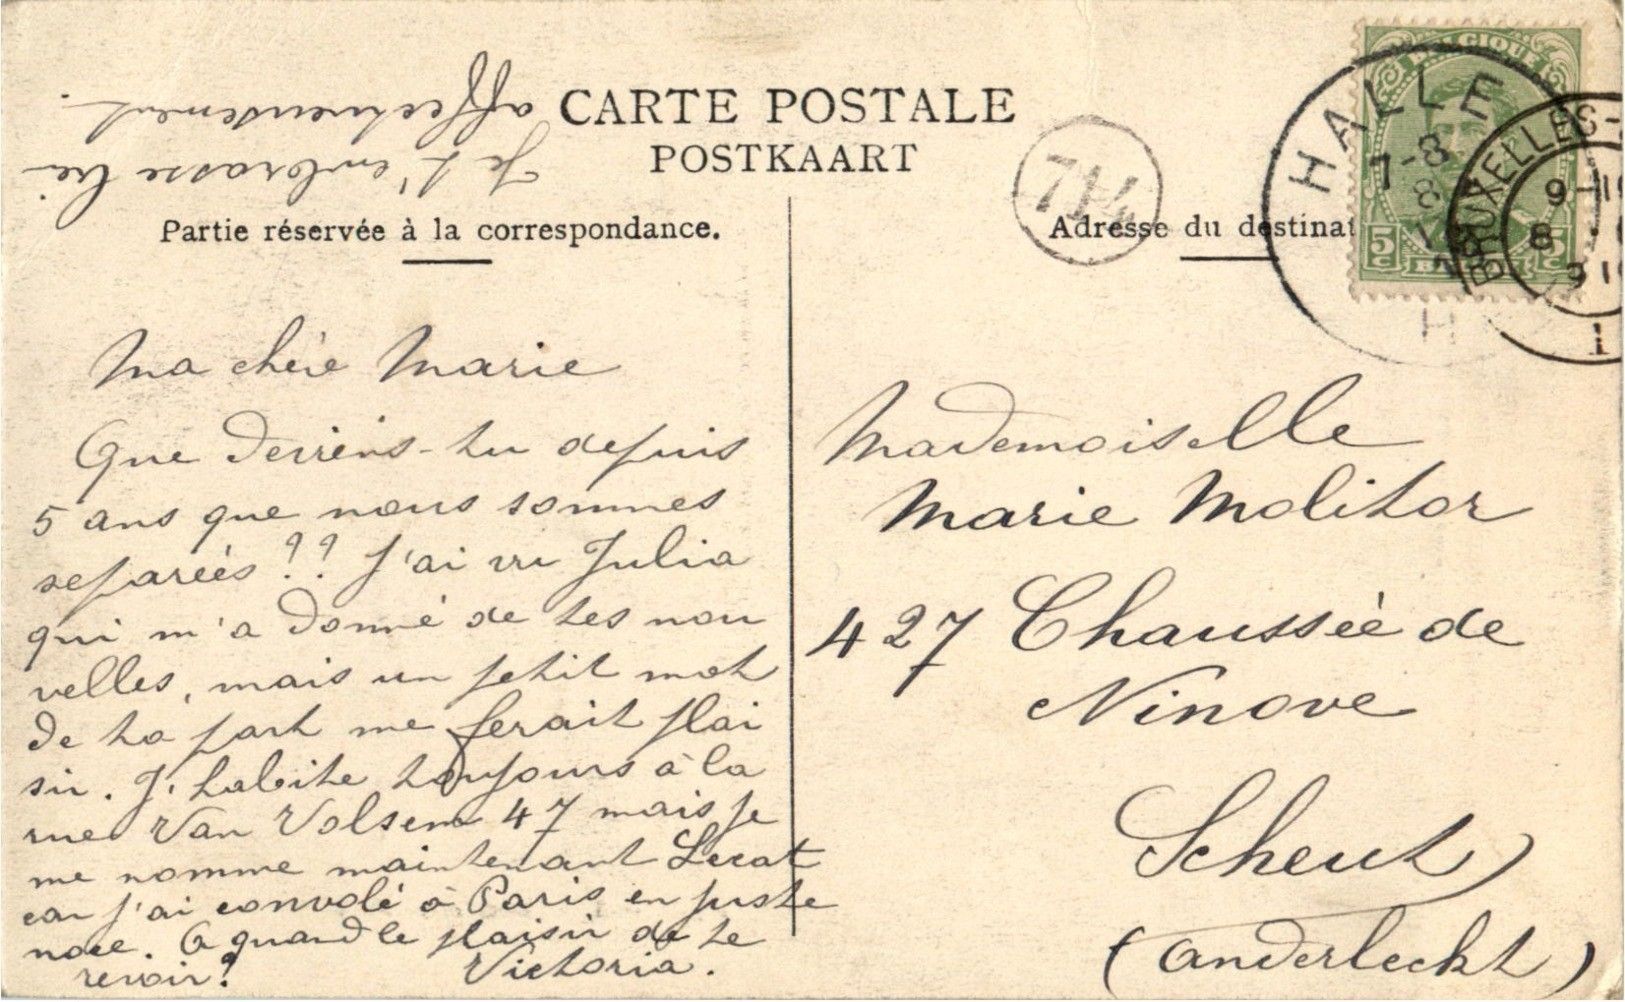 CARTE POSTALE
POSTKAART
Partie réservée à la correspondance.
Ma chère Marie
Que deviens-tu depuis
5 ans que nous sommes
separéés?? J'ai vu Julia
qui m'a donné de tes nou
velles, mais un petit mot
de ta part me ferait plai
sir. J'habite toujours à la
rue Van Volsem 47 mais je
me nomme maintenant Lecat
car j'ai convolé à Paris en juste
noce. A quand le plaisir de te
revoir?
Victoria.
Je t'embrasse bi
affectueusement.
71/4
Adresse du destinat
BELGIQUE
5c BELGIË 5c
HALLE
7-8
8
H
BRUXELLES-
9-10
8
1
Mademoiselle
Marie Molitor
427 Chaussée de
Ninove
Scheut
(Anderleckt)